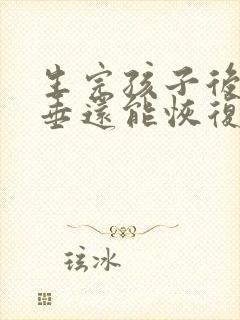 生完孩子後
垂還能恢復
玹冰